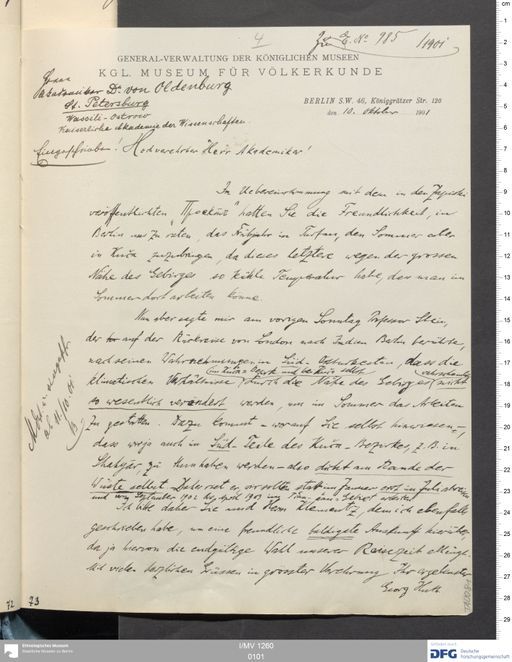 4
zu E. No 985 /1901
GENERAL-VERWALTUNG DER KÖNIGLICHEN MUSEEN
KGL. MUSEUM FÜR VÖLKERKUNDE
Herrn
Akademiker Dr. von Oldenburg
St. Petersburg
Wassili-Ostrow
Kaiserliche Akademie der Wissenschaften.
BERLIN S.W. 46, Königgrätzer Str. 120
den 10. Oktober 1901
Eingeschrieben! Hochverehrter Herr Akademiker!
In Uebereinstimmung mit dem in den Zapiski
veröffentlichten hatten Sie die Freundlichkeit, in
Berlin uns zu raten, das Frühjahr in Turfan, den Sommer aber
in Kuča zuzubringen, da dieses letztere wegen der grossen
Nähe des Gebirges so kühle Temperatur habe, dass man im
Sommer dort arbeiten könne.
Nun aber sagte mir am vorigen Sonntag Professor Stein,
der auf der Rückreise von London nach Indien Berlin berührte,
nach seinen Wahrnehmungen in Süd-Ostturkestan, dass die
klimatischen Verhältnisse durch die Nähe des Gebirges nicht
so wesentlich verändert werden, um im Sommer das Arbeiten
zu gestatten. Dazu kommt - worauf Sie selbst hinwiesen -,
dass wir ja auch im Süd-Teile des Kuča-Bezirkes, z.B. in
Shahyar zu thun haben werden - also dicht am Rande der
Wüste selbst.
Ich bitte daher Sie und Herrn Klementz, dem ich ebenfalls
geschrieben habe, um eine freundliche baldigste Auskunft hierüber,
da ja hiervon die endgültige Wahl unserer Reisezeit abhängt.
Mit vielen herzlichen Grüssen in grösster Verehrung Ihr ergebenster
Georg Huth
ab 11/10. 01
72 73
I/MV 1260
0101
Ethnologisches Museum
Staatliche Museen zu Berlin
gefördert durch
DFG Deutsche
Forschungsgemeinschaft